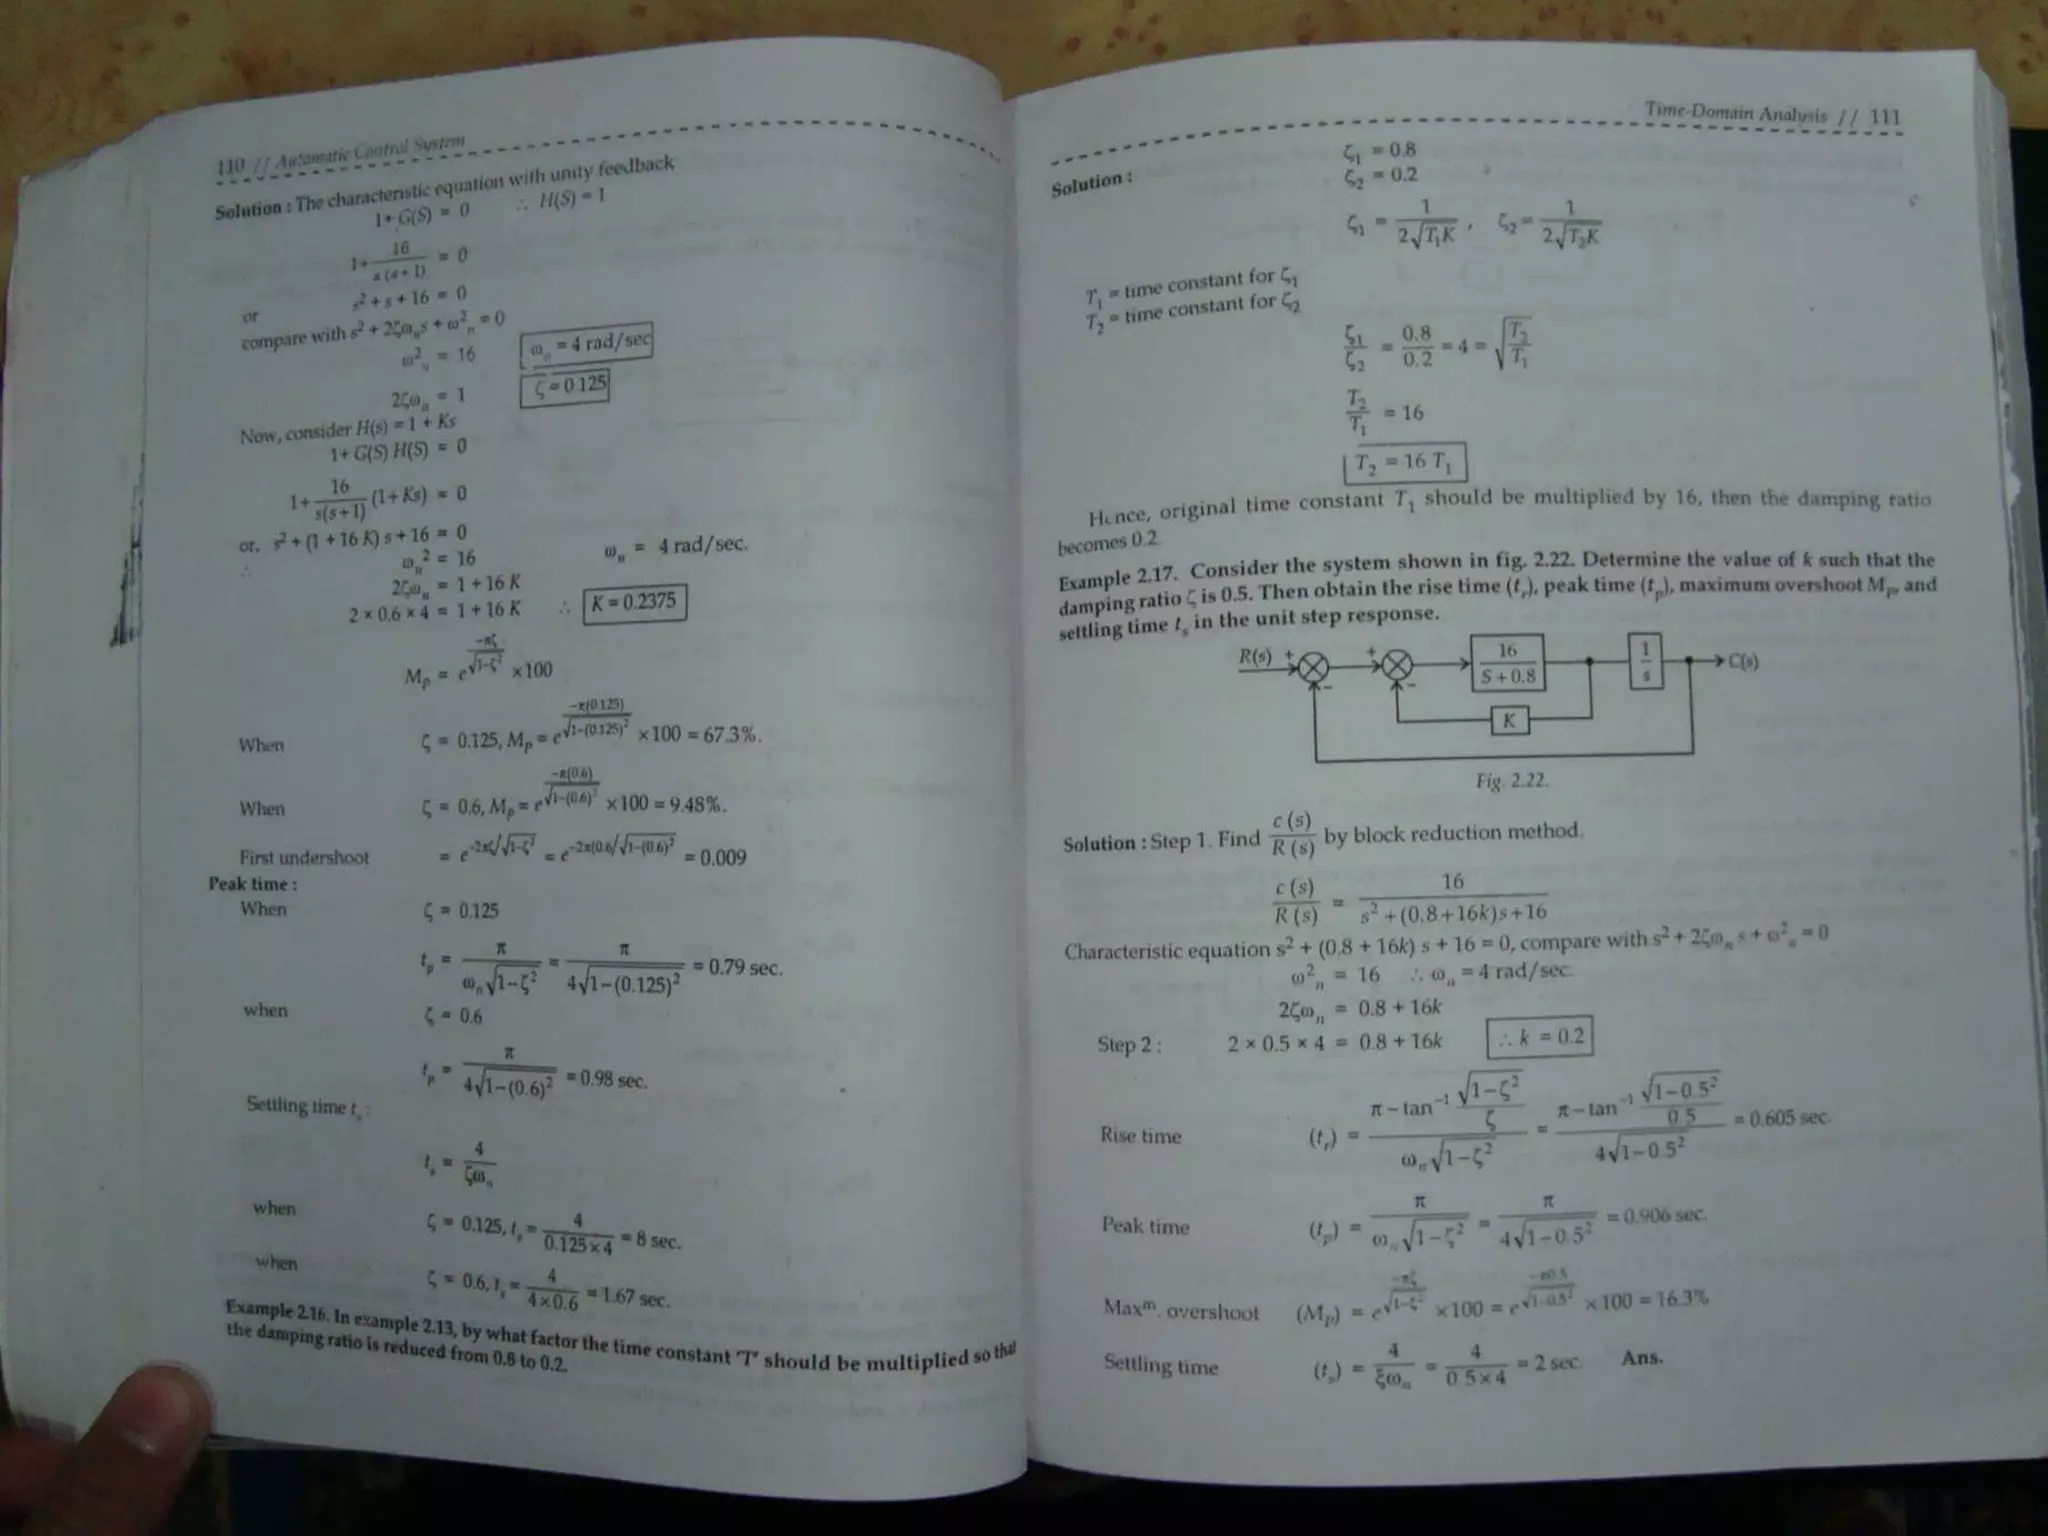 110 // Automatic Control System
Solution : The characteristic equation with unity feedback
1+ G(S) = 0 ∴ H(S) = 1
1+ 16/(s (s + 1)) = 0
or s² + s + 16 = 0
compare with s² + 2ζωₙs + ω²ₙ = 0
ω²ₙ = 16 ωₙ = 4 rad/sec
2ζωₙ = 1 ζ = 0.125
Now, consider H(s) = 1 + Ks
1+ G(S) H(S) = 0
1+ 16/(s(s+1)) (1+ Ks) = 0
or, s² + (1 + 16 K) s + 16 = 0
∴ ωₙ² = 16 ωₙ = 4 rad/sec.
2ζωₙ = 1 + 16 K
2 × 0.6 × 4 = 1 + 16 K ∴ K = 0.2375
Mₚ = e^(−πζ/√(1−ζ²)) ×100
When ζ = 0.125, Mₚ = e^(−π(0.125)/√(1−(0.125)²)) ×100 = 67.3%.
When ζ = 0.6, Mₚ = e^(−π(0.6)/√(1−(0.6)²)) ×100 = 9.48%.
First undershoot = e^(−2πζ/√(1−ζ²)) = e^(−2π(0.6/√(1−(0.6)²) = 0.009
Peak time :
When ζ = 0.125
tₚ = π/(ωₙ√(1−ζ²)) = π/(4√(1−(0.125)²)) = 0.79 sec.
when ζ = 0.6
tₚ = π/(4√(1−(0.6)²)) = 0.98 sec.
Settling time tₛ :
tₛ = 4/(ζωₙ)
when ζ = 0.125, tₛ = 4/(0.125×4) = 8 sec.
when ζ = 0.6, tₛ = 4/(4×0.6) = 1.67 sec.
Example 2.16. In example 2.13, by what factor the time constant 'T' should be multiplied so that
the damping ratio is reduced from 0.8 to 0.2.
Time-Domain Analysis // 111
Solution : ζ₁ = 0.8
ζ₂ = 0.2
ζ₁ = 1/(2√(T₁K)) , ζ₂ = 1/(2√(T₂K))
T₁ = time constant for ζ₁
T₂ = time constant for ζ₂
ζ₁/ζ₂ = 0.8/0.2 = 4 = √(T₂/T₁)
T₂/T₁ = 16
T₂ = 16 T₁
Hence, original time constant T₁ should be multiplied by 16, then the damping ratio
becomes 0.2.
Example 2.17. Consider the system shown in fig. 2.22. Determine the value of k such that the
damping ratio ζ is 0.5. Then obtain the rise time (tᵣ), peak time (tₚ), maximum overshoot Mₚ, and
settling time tₛ in the unit step response.
R(s) + + 16/(S + 0.8) 1/s C(s)
− −
K
Fig. 2.22.
Solution : Step 1. Find c (s)/R (s) by block reduction method.
c (s)/R (s) = 16/(s² + (0.8+16k)s+16)
Characteristic equation s² + (0.8 + 16k) s + 16 = 0, compare with s² + 2ζωₙ s + ω²ₙ = 0
ω²ₙ = 16 ∴ ωₙ = 4 rad/sec.
2ζωₙ = 0.8 + 16k
Step 2 : 2 × 0.5 × 4 = 0.8 + 16k ∴ k = 0.2
Rise time (tᵣ) = (π − tan⁻¹ √(1−ζ²)/ζ)/(ωₙ√(1−ζ²)) = (π − tan⁻¹ √(1−0.5²)/0.5)/(4√(1−0.5²)) = 0.605 sec.
Peak time (tₚ) = π/(ωₙ√(1−ζ²)) = π/(4√(1−0.5²)) = 0.906 sec.
Maxᵐ. overshoot (Mₚ) = e^(−πζ/√(1−ζ²)) ×100 = e^(−π0.5/√(1−0.5²)) ×100 = 16.3%
Settling time (tₛ) = 4/(ξωₙ) = 4/(0.5×4) = 2 sec. Ans.